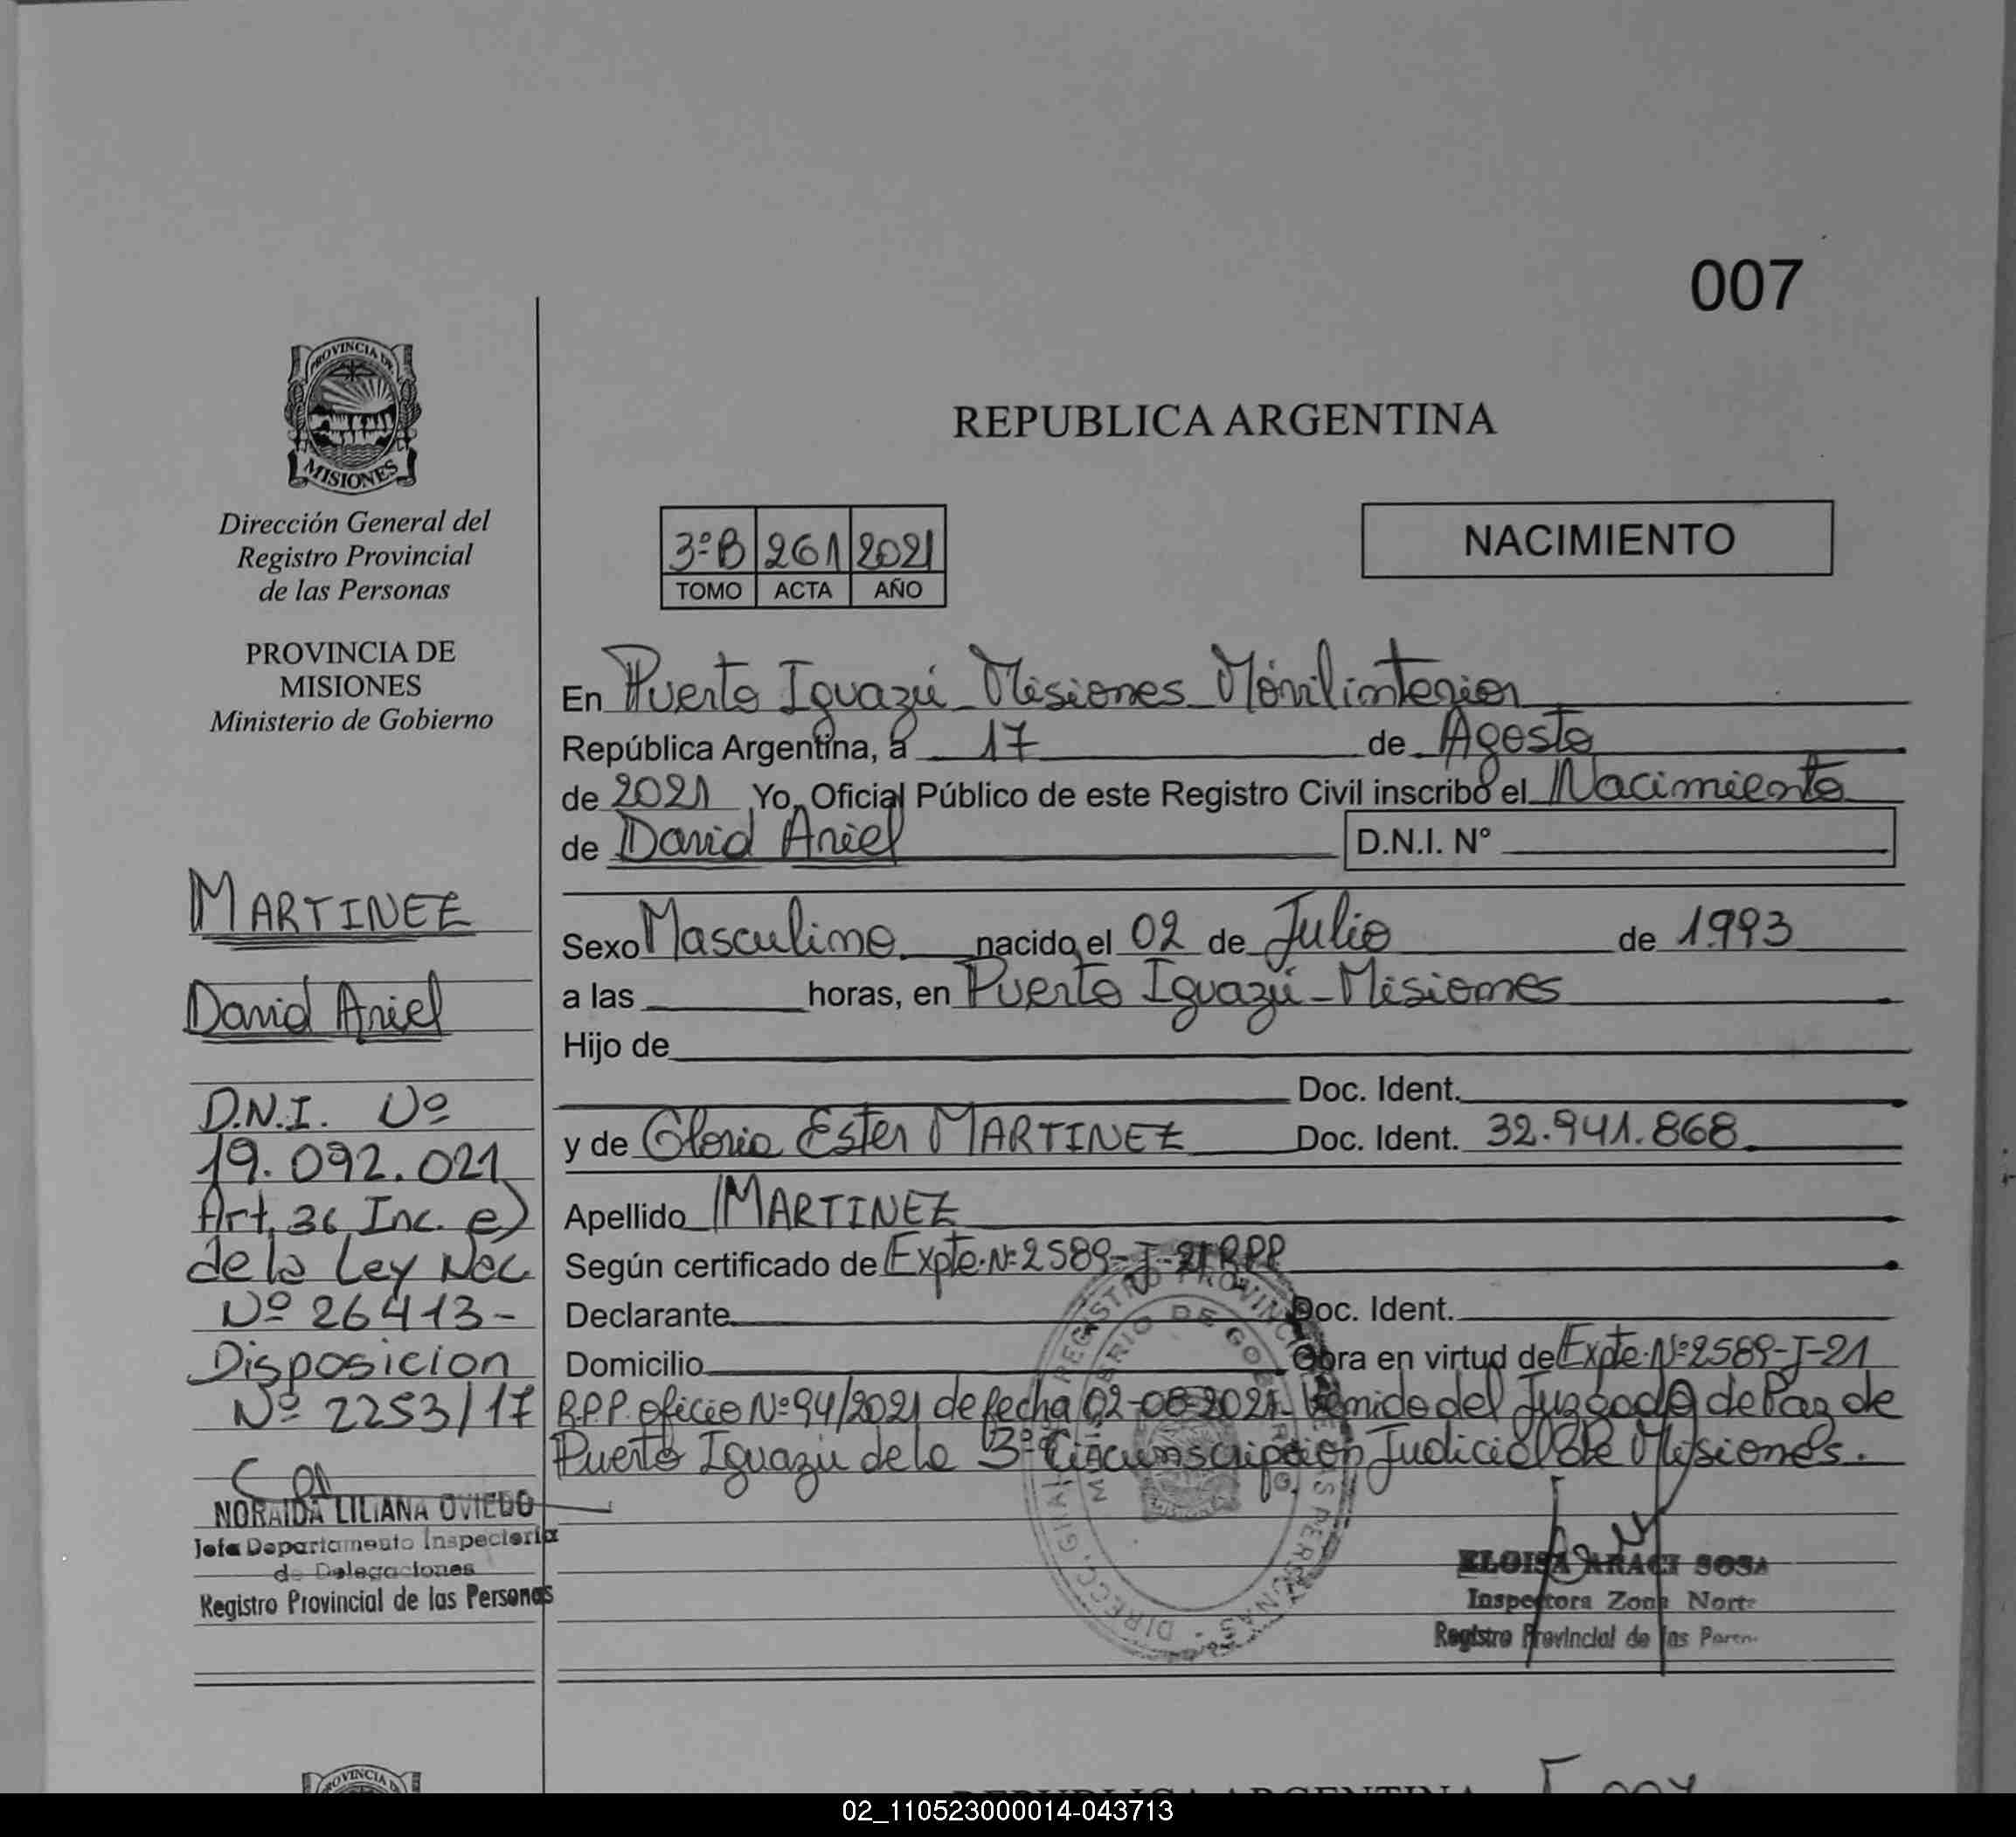 007
PROVINCIA DE
MISIONES
Dirección General del
Registro Provincial
de las Personas
PROVINCIA DE
MISIONES
Ministerio de Gobierno
MARTINEZ
David Ariel
D.N.I. Nº
19.092.021
Art. 36 Inc. e)
de la Ley Nac.
Nº 26413-
Disposicion
Nº 2253/17
NORAIDA LILIANA OVIEDO
Jefa Departamento Inspectoria
de Delegaciones
Registro Provincial de las Personas
REPUBLICA ARGENTINA
3ºB 261 2021
TOMO ACTA AÑO
NACIMIENTO
En Puerto Iguazú - Misiones - Móvil interior
República Argentina, a 17 de Agosto
de 2021 Yo, Oficial Público de este Registro Civil inscribo el Nacimiento
de David Ariel D.N.I. N°
Sexo Masculino nacido el 02 de Julio de 1.993
a las horas, en Puerto Iguazú - Misiones
Hijo de
Doc. Ident.
y de Gloria Ester MARTINEZ Doc. Ident. 32.941.868
Apellido MARTINEZ
Según certificado de Expte. Nº 2589-J-21 RPP
Declarante Doc. Ident.
Domicilio Obra en virtud de Expte. Nº 2589-J-21
R.P.P. oficio Nº 94/2021 de fecha 02-08-2021- del Juzgado de Paz de
Puerto Iguazú de la 3º Circunscripcion Judicial de Misiones.
ELOISA ARACI SOSA
Inspectora Zona Norte
Registro Provincial de las
02_110523000014-043713